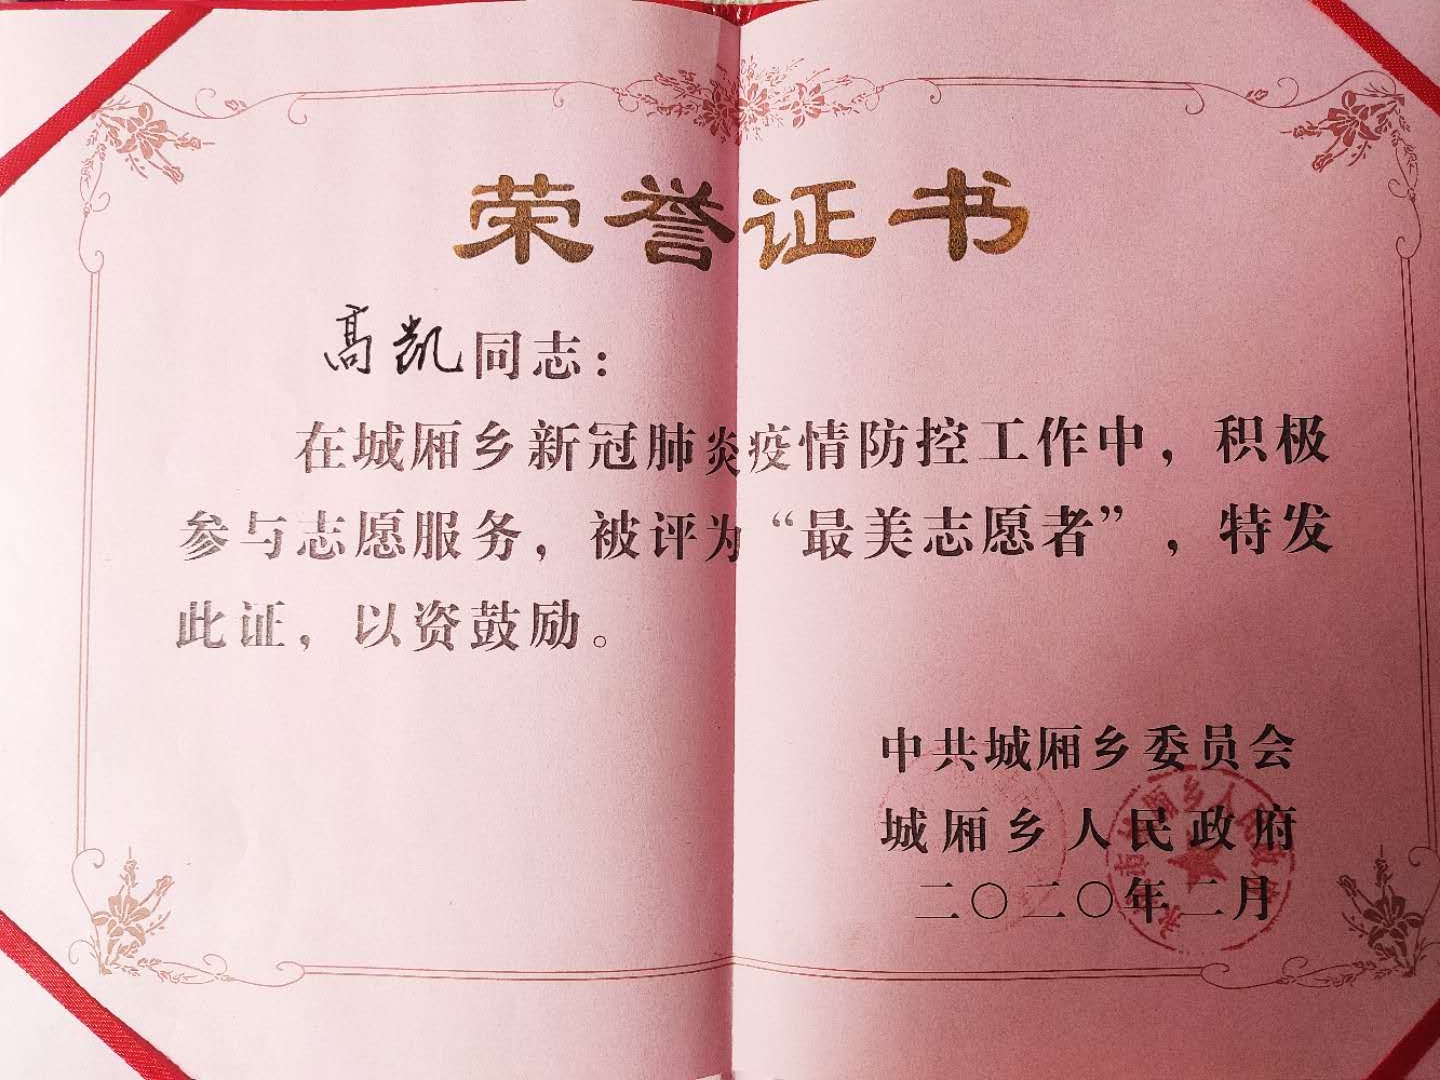 荣誉证书
高凯同志：
在城厢乡新冠肺炎疫情防控工作中，积极
参与志愿服务，被评为“最美志愿者”，特发
此证，以资鼓励。
中共城厢乡委员会
城厢乡人民政府
二〇二〇年二月